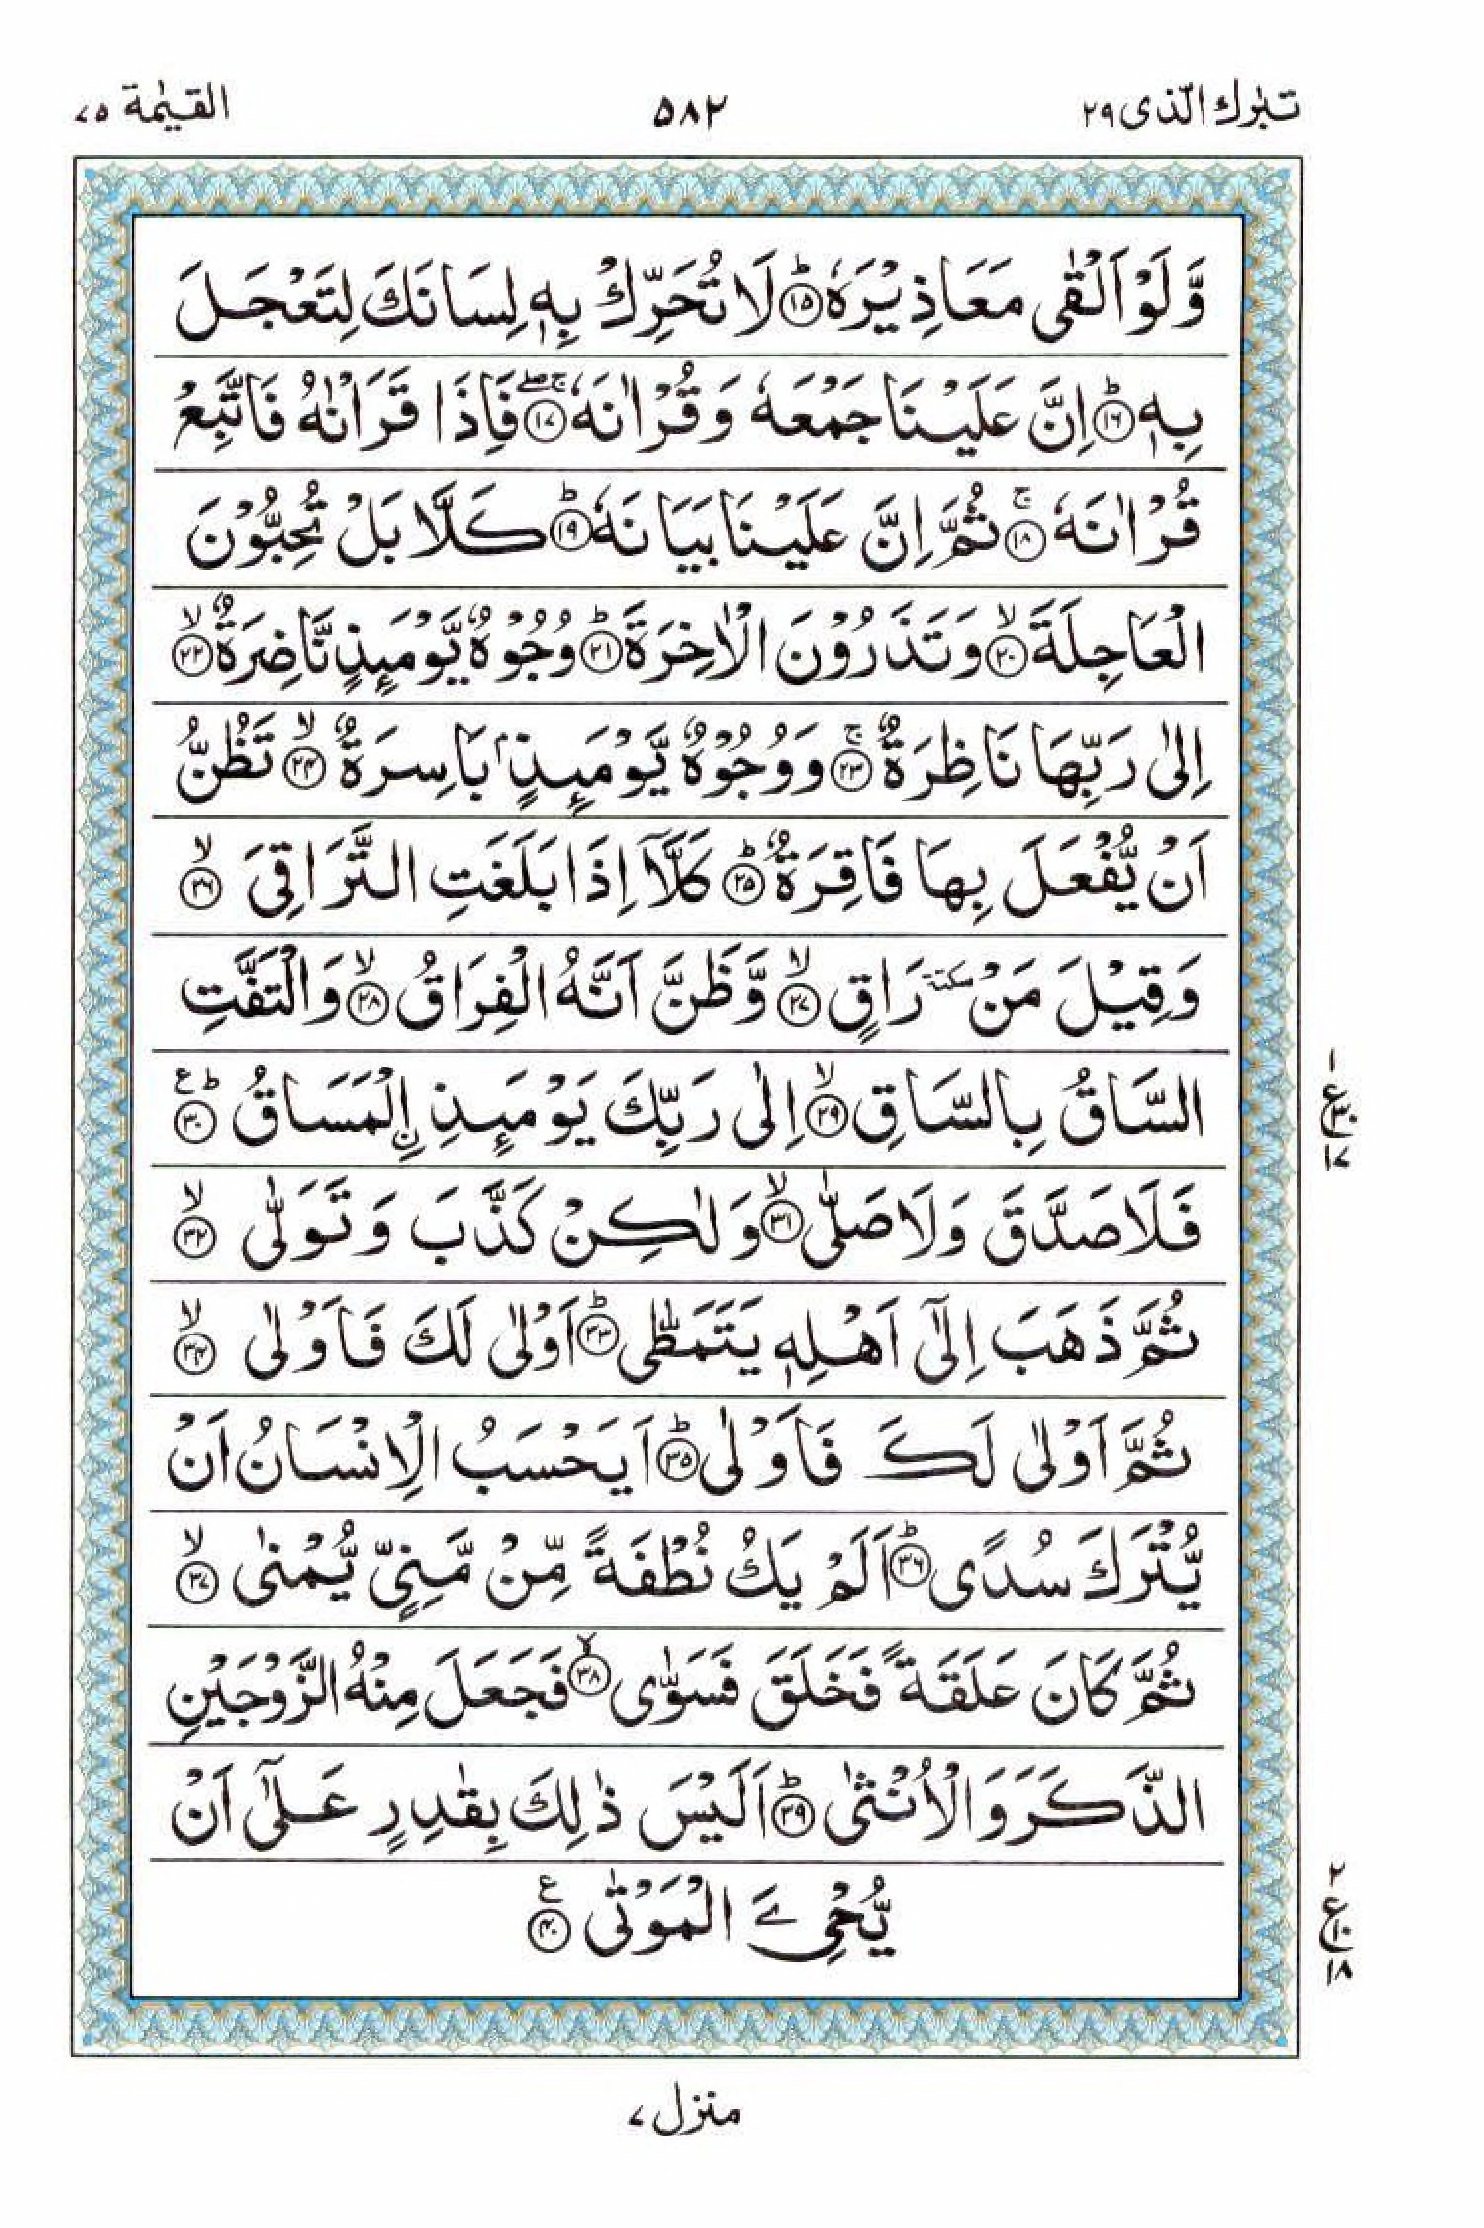 تبٰرك الّذی ٢٩ ٥٨٢ القيٰمة ٧٥
وَّلَوْ اَلْقٰى مَعَاذِيْرَهٗ ؕ‏﴿١٥﴾ لَا تُحَرِّكْ بِهٖ لِسَانَكَ لِتَعْجَلَ
بِهٖ ؕ‏﴿١٦﴾ اِنَّ عَلَيْنَا جَمْعَهٗ وَ قُرْاٰنَهٗ ۚۖ‏﴿١٧﴾ فَاِذَا قَرَاْنٰهُ فَاتَّبِعْ
قُرْاٰنَهٗ ۚ‏﴿١٨﴾ ثُمَّ اِنَّ عَلَيْنَا بَيَانَهٗ ؕ‏﴿١٩﴾ كَلَّا بَلْ تُحِبُّوْنَ
الْعَاجِلَةَ ۙ‏﴿٢٠﴾ وَ تَذَرُوْنَ الْاٰخِرَةَ ؕ‏﴿٢١﴾ وُجُوْهٌ يَّوْمَىِٕذٍ نَّاضِرَةٌ ۙ‏﴿٢٢﴾
اِلٰى رَبِّهَا نَاظِرَةٌ ۚ‏﴿٢٣﴾ وَ وُجُوْهٌ يَّوْمَىِٕذٍۭ بَاسِرَةٌ ۙ‏﴿٢٤﴾ تَظُنُّ
اَنْ يُّفْعَلَ بِهَا فَاقِرَةٌ ؕ‏﴿٢٥﴾ كَلَّاۤ اِذَا بَلَغَتِ التَّرَاقِيَ ۙ‏﴿٢٦﴾
وَ قِيْلَ مَنْ سكتة رَاقٍ ۙ‏﴿٢٧﴾ وَّ ظَنَّ اَنَّهُ الْفِرَاقُ ۙ‏﴿٢٨﴾ وَ الْتَفَّتِ
السَّاقُ بِالسَّاقِ ۙ‏﴿٢٩﴾ اِلٰى رَبِّكَ يَوْمَىِٕذِ ِ۟الْمَسَاقُ ؕ ع﴿٣٠﴾
فَلَا صَدَّقَ وَ لَا صَلّٰى ۙ‏﴿٣١﴾ وَ لٰكِنْ كَذَّبَ وَ تَوَلّٰى ۙ‏﴿٣٢﴾
ثُمَّ ذَهَبَ اِلٰۤى اَهْلِهٖ يَتَمَطّٰى ؕ‏﴿٣٣﴾ اَوْلٰى لَكَ فَاَوْلٰى ۙ‏﴿٣٤﴾
ثُمَّ اَوْلٰى لَكَ فَاَوْلٰى ؕ‏﴿٣٥﴾ اَيَحْسَبُ الْاِنْسَانُ اَنْ
يُّتْرَكَ سُدًى ؕ‏﴿٣٦﴾ اَلَمْ يَكُ نُطْفَةً مِّنْ مَّنِيٍّ يُّمْنٰى ۙ‏﴿٣٧﴾
ثُمَّ كَانَ عَلَقَةً فَخَلَقَ فَسَوّٰى ۙ‏﴿٣٨﴾ فَجَعَلَ مِنْهُ الزَّوْجَيْنِ
الذَّكَرَ وَ الْاُنْثٰى ؕ‏﴿٣٩﴾ اَلَيْسَ ذٰلِكَ بِقٰدِرٍ عَلٰۤى اَنْ
يُّحْيِۦَ الْمَوْتٰى ع﴿٤٠﴾
١ ع ٣٠ ١٧
٢ ع ١٠ ١٨
منزل ٧